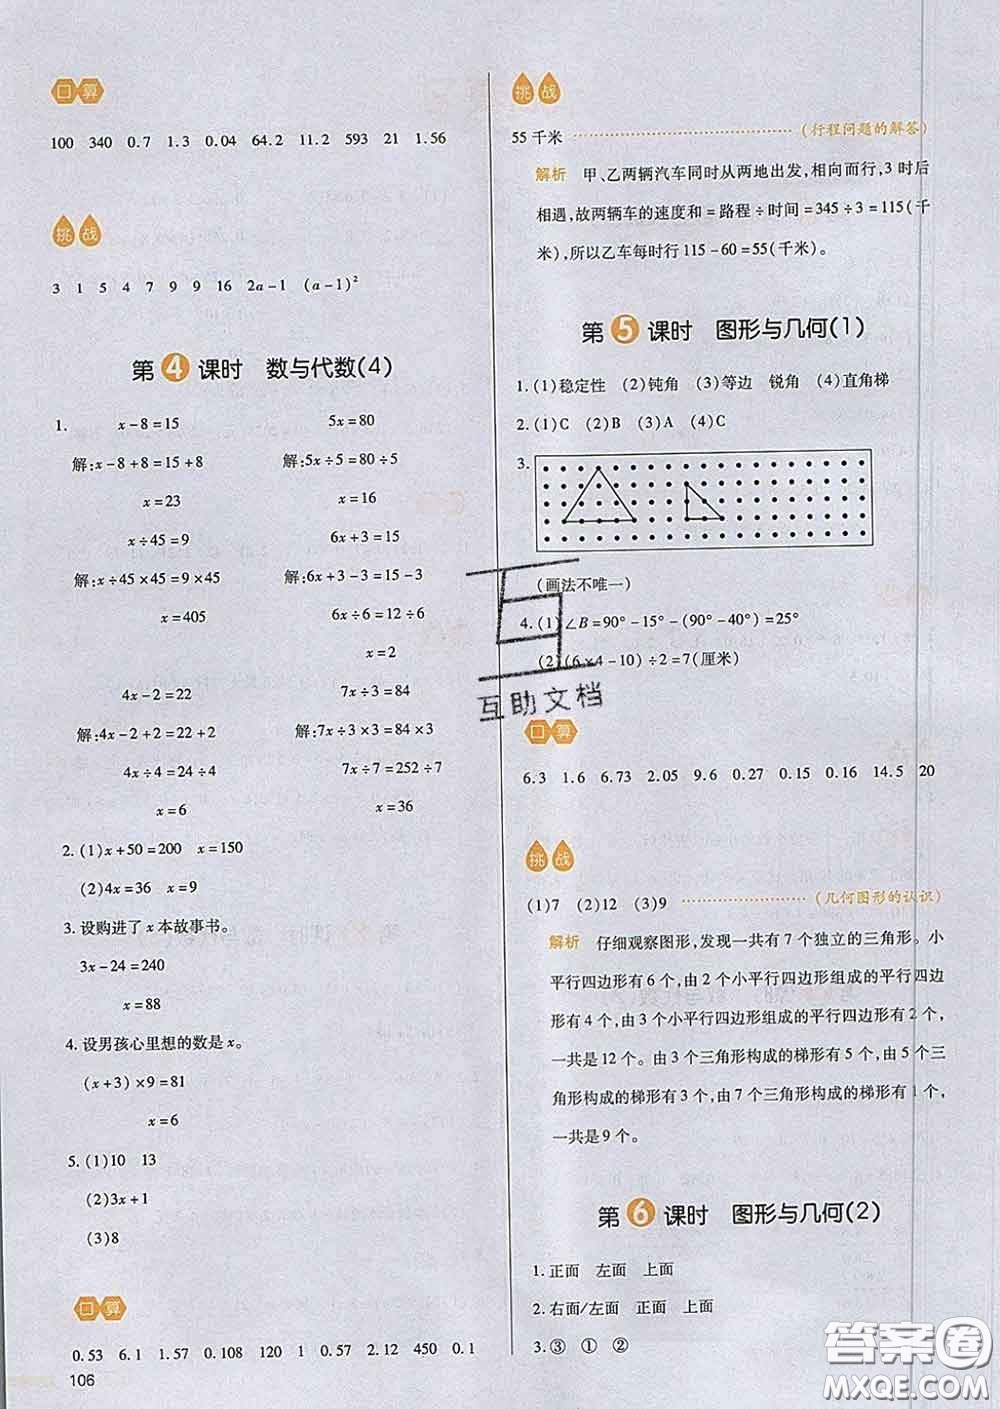 口算
100 340 0.7 1.3 0.04 64.2 11.2 593 21 1.56
挑战
3 1 5 4 7 9 9 16 2a-1 (a-1)²
第4课时 数与代数(4)
1. x-8=15 5x=80
解:x-8+8=15+8 解:5x÷5=80÷5
x=23 x=16
x÷45=9 6x+3=15
解:x÷45×45=9×45 解:6x+3-3=15-3
x=405 6x÷6=12÷6
x=2
4x-2=22 7x÷3=84
解:4x-2+2=22+2 解:7x÷3×3=84×3
4x÷4=24÷4 7x÷7=252÷7
x=6 x=36
2. (1)x+50=200 x=150
(2)4x=36 x=9
3. 设购进了x本故事书。
3x-24=240
x=88
4. 设男孩心里想的数是x。
(x+3)×9=81
x=6
5. (1)10 13
(2)3x+1
(3)8
口算
0.53 6.1 1.57 0.108 120 1 0.57 2.12 450 0.1
106
挑战
55千米 (行程问题的解答)
解析 甲、乙两辆汽车同时从两地出发,相向而行,3时后
相遇,故两辆车的速度和=路程÷时间=345÷3=115(千
米),所以乙车每时行115-60=55(千米)。
第5课时 图形与几何(1)
1. (1)稳定性 (2)钝角 (3)等边 锐角 (4)直角梯
2. (1)C (2)B (3)A (4)C
3.
(画法不唯一)
4. (1)∠B=90°-15°-(90°-40°)=25°
(2)(6×4-10)÷2=7(厘米)
互助文档
口算
6.3 1.6 6.73 2.05 9.6 0.27 0.15 0.16 14.5 20
挑战
(1)7 (2)12 (3)9 (几何图形的认识)
解析 仔细观察图形,发现一共有7个独立的三角形。小
平行四边形有6个,由2个小平行四边形组成的平行四边
形有4个,由3个小平行四边形组成的平行四边形有2个,
一共是12个。由3个三角形构成的梯形有5个,由5个三
角形构成的梯形有3个,由7个三角形构成的梯形有1个,
一共是9个。
第6课时 图形与几何(2)
1. 正面 左面 上面
2. 右面/左面 正面 上面
3. ③ ① ②
答案圈
MXQE.COM